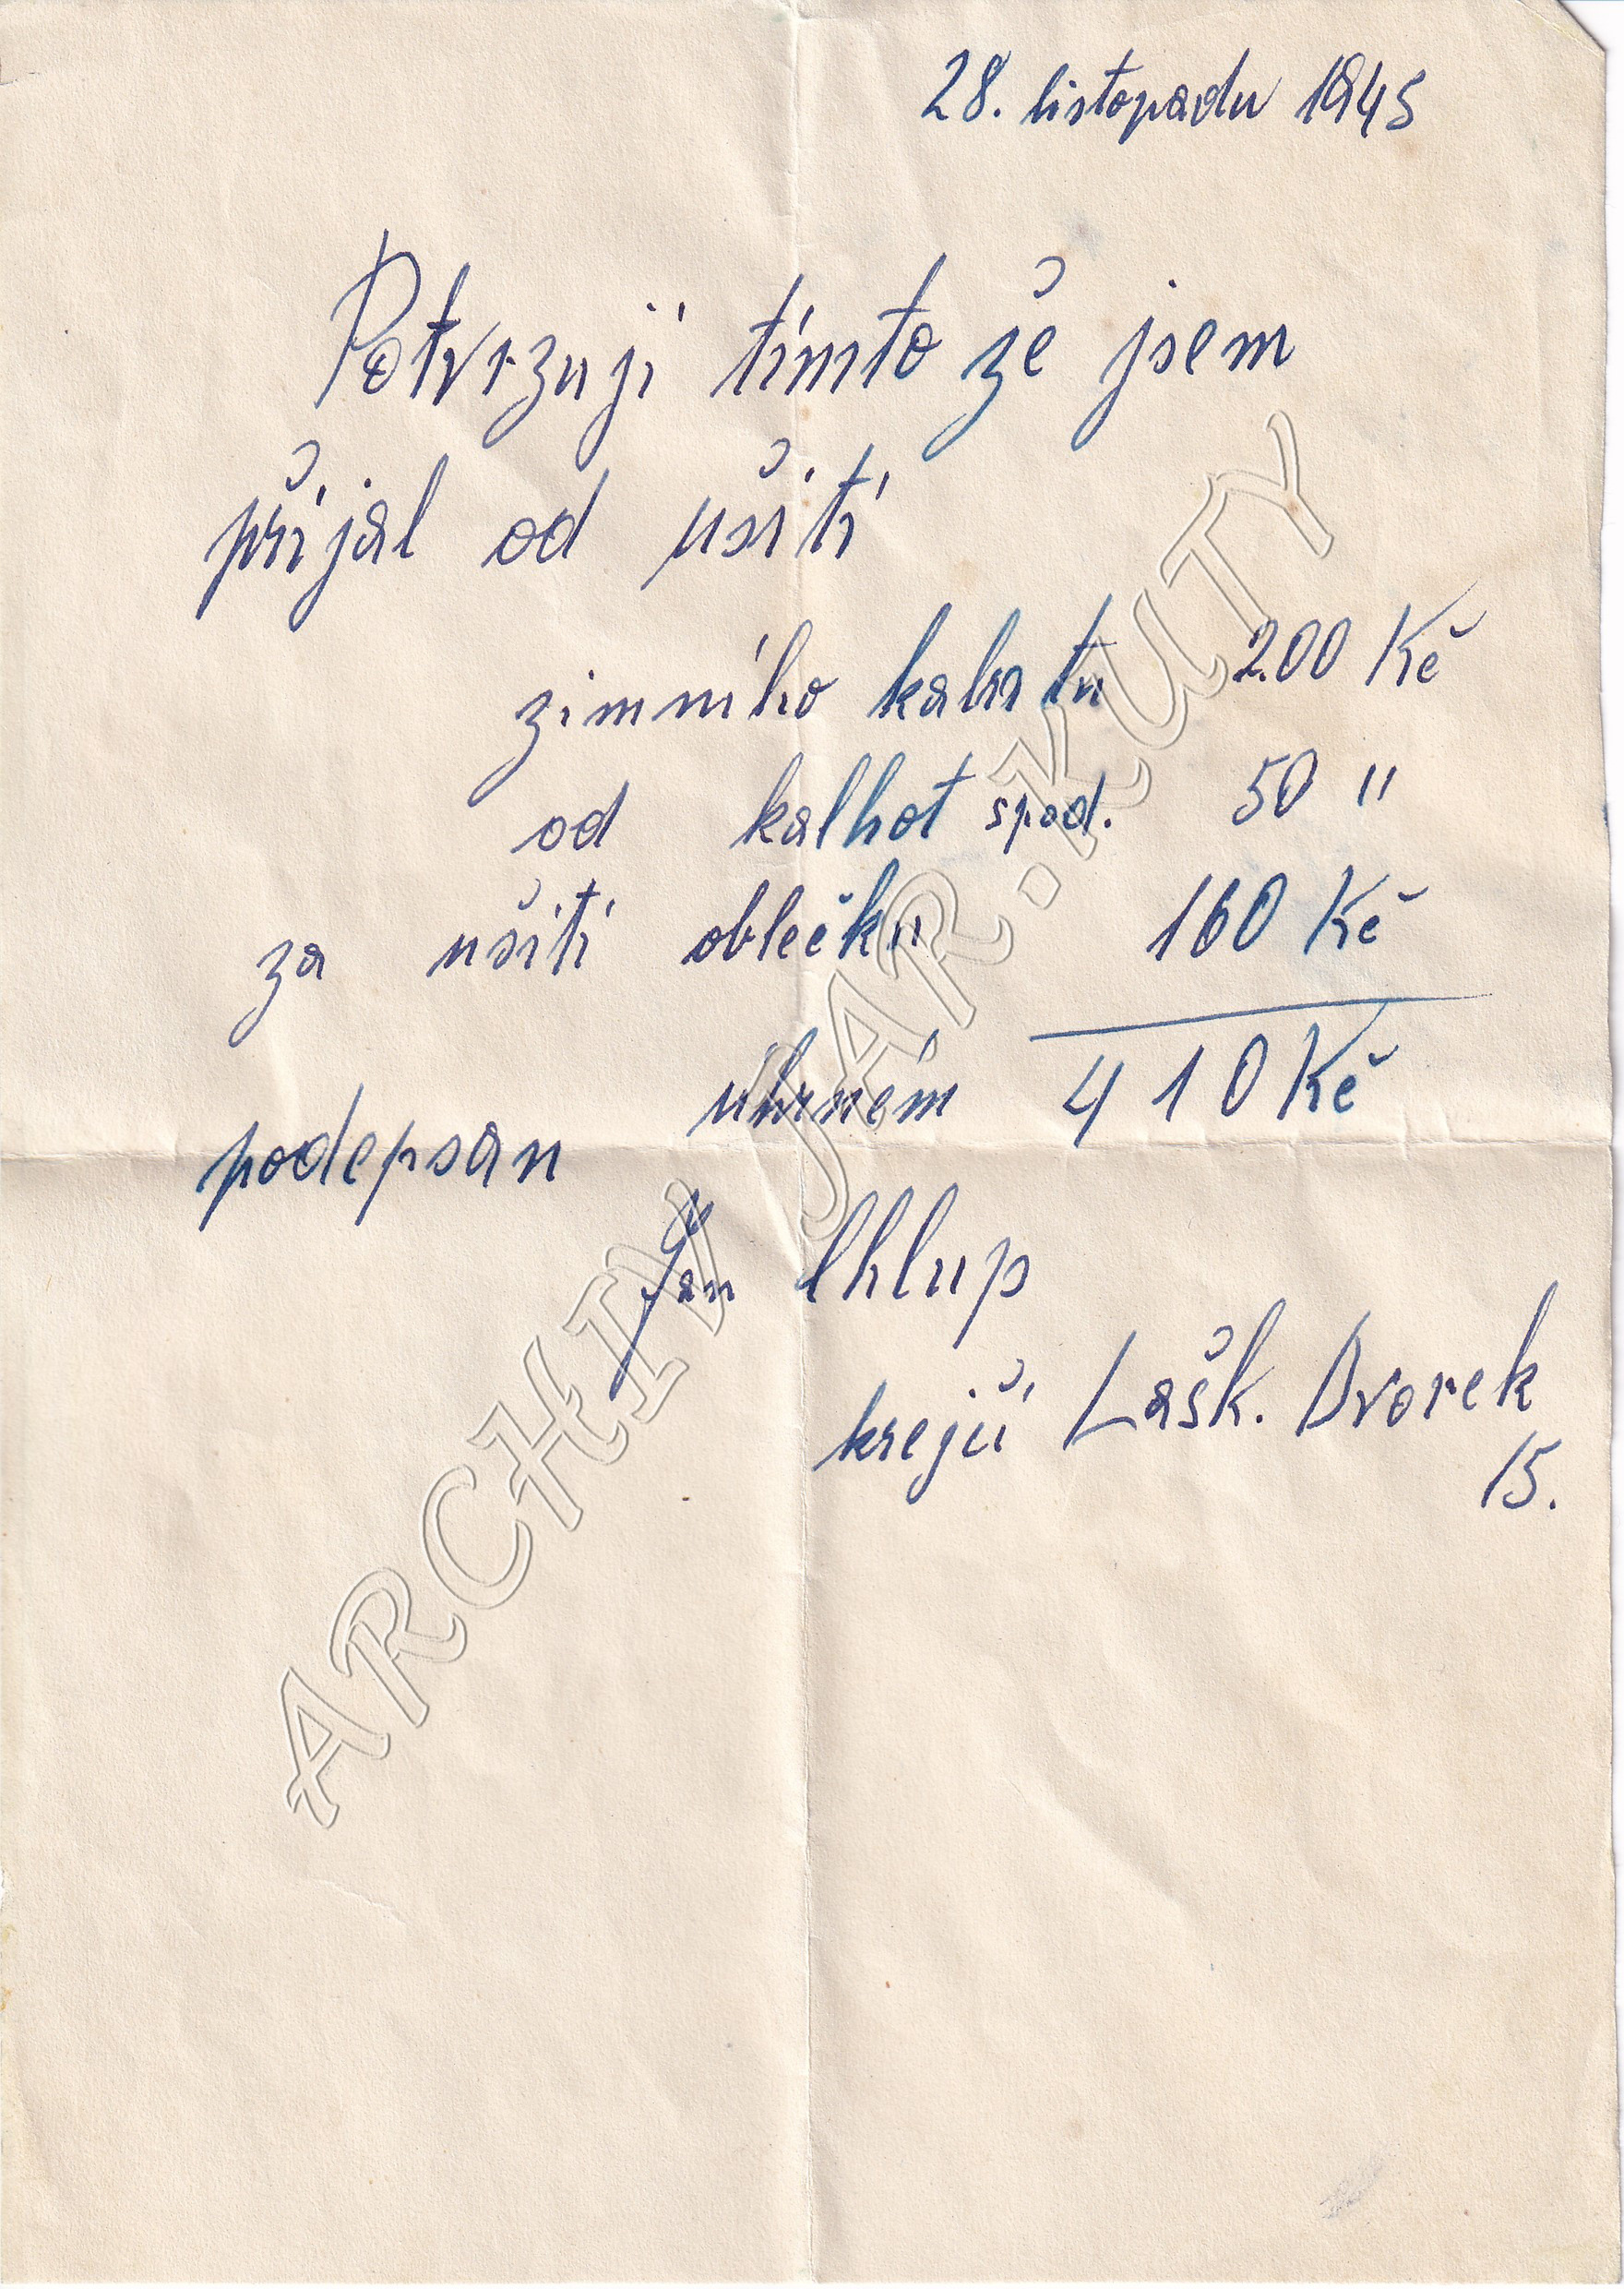 28. listopadu 1945
Potvrzuji tímto že jsem
přijal od ušití
zimního kabátu 200 Kč
od kalhot spod. 50 "
za ušití oblečku 160 Kč
úhrnem 410 Kč
podepsán
Jan Chlup
krejčí Lašk. Dvorek
15.
ARCHIV JAR. KUTY